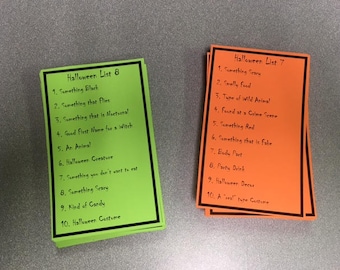 Halloween List 8
1. Something Black
2. Something that Flies
3. Something that is Nocturnal
4. Good First Name for a Witch
5. An Animal
6. Halloween Creature
7. Something you don't want to eat
8. Something Scary
9. Kind of Candy
10. Halloween Costume
Halloween List 7
1. Something Scary
2. Smelly Food
3. Type of Wild Animal
4. Found at a Crime Scene
5. Something Red
6. Something that is Fake
7. Body Part
8. Party Drink
9. Halloween Decor
10. A "sexy" type Costume